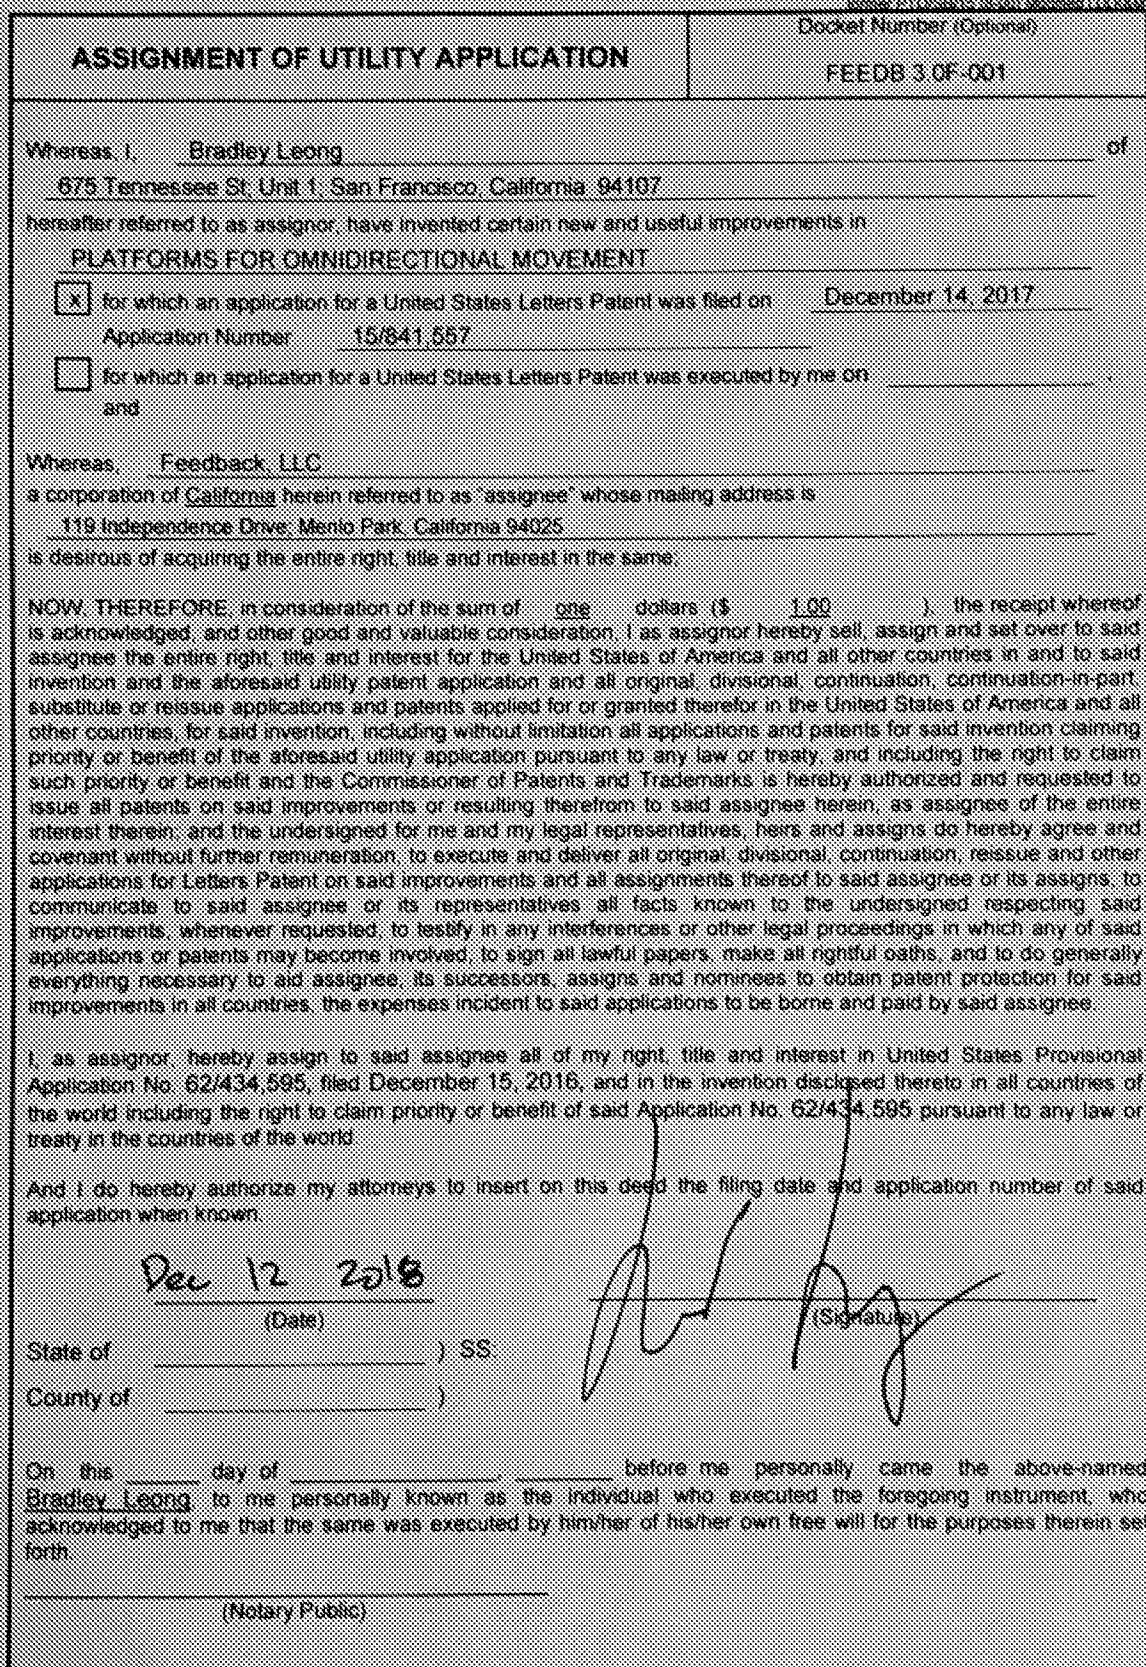 Docket Number (Optional)
ASSIGNMENT OF UTILITY APPLICATION
FEEDB 3.0F-001
Whereas, I, Bradley Leong of
675 Tennessee St, Unit 1, San Francisco, California 94107
hereafter referred to as assignor, have invented certain new and useful improvements in
PLATFORMS FOR OMNIDIRECTIONAL MOVEMENT
x for which an application for a United States Letters Patent was filed on December 14, 2017
Application Number 15/841,557
for which an application for a United States Letters Patent was executed by me on ,
and
Whereas, Feedback, LLC
a corporation of California herein referred to as "assignee" whose mailing address is
119 Independence Drive; Menlo Park, California 94025
is desirous of acquiring the entire right, title and interest in the same;
NOW, THEREFORE, in consideration of the sum of one dollars ($ 1.00 ), the receipt whereof
is acknowledged, and other good and valuable consideration, I as assignor hereby sell, assign and set over to said
assignee the entire right, title and interest for the United States of America and all other countries in and to said
invention and the aforesaid utility patent application and all original, divisional, continuation, continuation-in-part,
substitute or reissue applications and patents applied for or granted therefor in the United States of America and all
other countries, for said invention, including without limitation all applications and patents for said invention claiming
priority or benefit of the aforesaid utility application pursuant to any law or treaty, and including the right to claim
such priority or benefit and the Commissioner of Patents and Trademarks is hereby authorized and requested to
issue all patents on said improvements or resulting therefrom to said assignee herein, as assignee of the entire
interest therein; and the undersigned for me and my legal representatives, heirs and assigns do hereby agree and
covenant without further remuneration, to execute and deliver all original, divisional, continuation, reissue and other
applications for Letters Patent on said improvements and all assignments thereof to said assignee or its assigns, to
communicate to said assignee or its representatives all facts known to the undersigned respecting said
improvements, whenever requested, to testify in any interferences or other legal proceedings in which any of said
applications or patents may become involved, to sign all lawful papers, make all rightful oaths, and to do generally
everything necessary to aid assignee, its successors, assigns and nominees to obtain patent protection for said
improvements in all countries, the expenses incident to said applications to be borne and paid by said assignee.
I, as assignor, hereby assign to said assignee all of my right, title and interest in United States Provisional
Application No. 62/434,595, filed December 15, 2016, and in the invention disclosed thereto in all countries of
the world including the right to claim priority or benefit of said Application No. 62/434,595 pursuant to any law or
treaty in the countries of the world.
And I do hereby authorize my attorneys to insert on this deed the filing date and application number of said
application when known.
Dec 12 2018
(Date) (Signature)
State of ) SS.
County of )
On this day of , before me personally came the above-named
Bradley Leong to me personally known as the individual who executed the foregoing instrument, who
acknowledged to me that the same was executed by him/her of his/her own free will for the purposes therein set
forth.
(Notary Public)